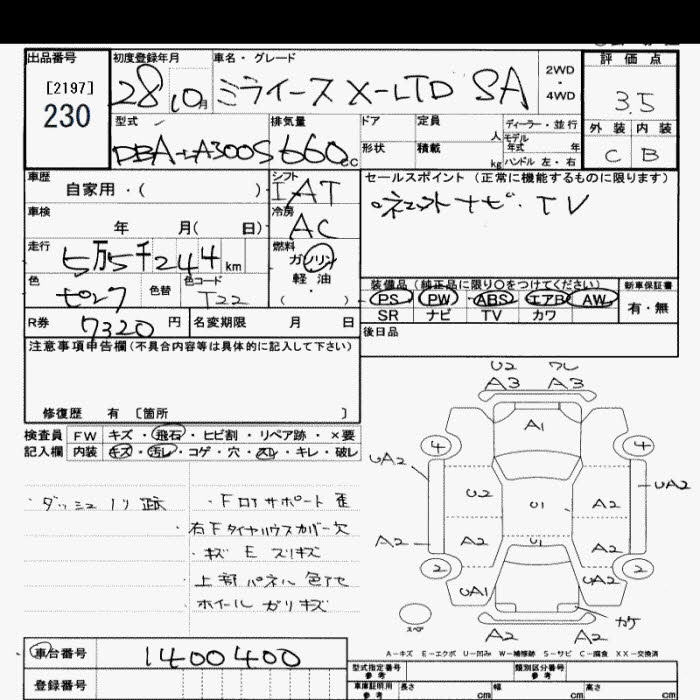 出品番号
[2197]
230
初度登録年月
28 10月
車名・グレード
ミライース X-LTD SA
2WD
・
4WD
評価点
3.5
外装 内装
C B
型式
DBA-LA300S
排気量
660cc
ドア
形状
定員 人
積載 kg
ディーラー・並行
モデル年式 年
ハンドル 左・右
車歴
自家用・( )
車検
年 月( 日)
走行
5万5千244km
色
ピンク
色替
色コード
T22
シフト
IAT
冷房
AC
燃料
ガソリン
軽油
・
( )
セールスポイント (正常に機能するものに限ります)
ナビ・TV
装備品 (純正品に限り○をつけてください)
PS PW ABS エアB AW
SR ナビ TV カワ
新車保証書
有・無
R券 7320円
名変期限 月 日
後日品
注意事項申告欄(不具合内容等は具体的に記入して下さい)
修復歴 有 〔箇所 〕
検査員記入欄
FW キズ・飛石・ヒビ割・リペア跡・×要
内装 キズ・汚レ・コゲ・穴・スレ・キレ・破レ
・ダッシュノリ跡
・Fロアサポート歪
・右Fタイヤハウスカバー欠
・キズ E スリキズ
・上部パネル色アセ
ホイールガリキズ
U2
A3 A3
A1
4 4
UA2 UA2
U2 U1 A2
A2 A2 U1 A2 A2
2 2
UA1 UA2
スペア
カケ
A2 A2
A-キズ E-エクボ U-凹み W-補修跡 S-サビ C-腐食 XX-交換済
車台番号 1400400
登録番号
型式指定番号
参考
類別区分番号
参考
車庫証明用
参考
長さ cm
幅 cm
高さ cm